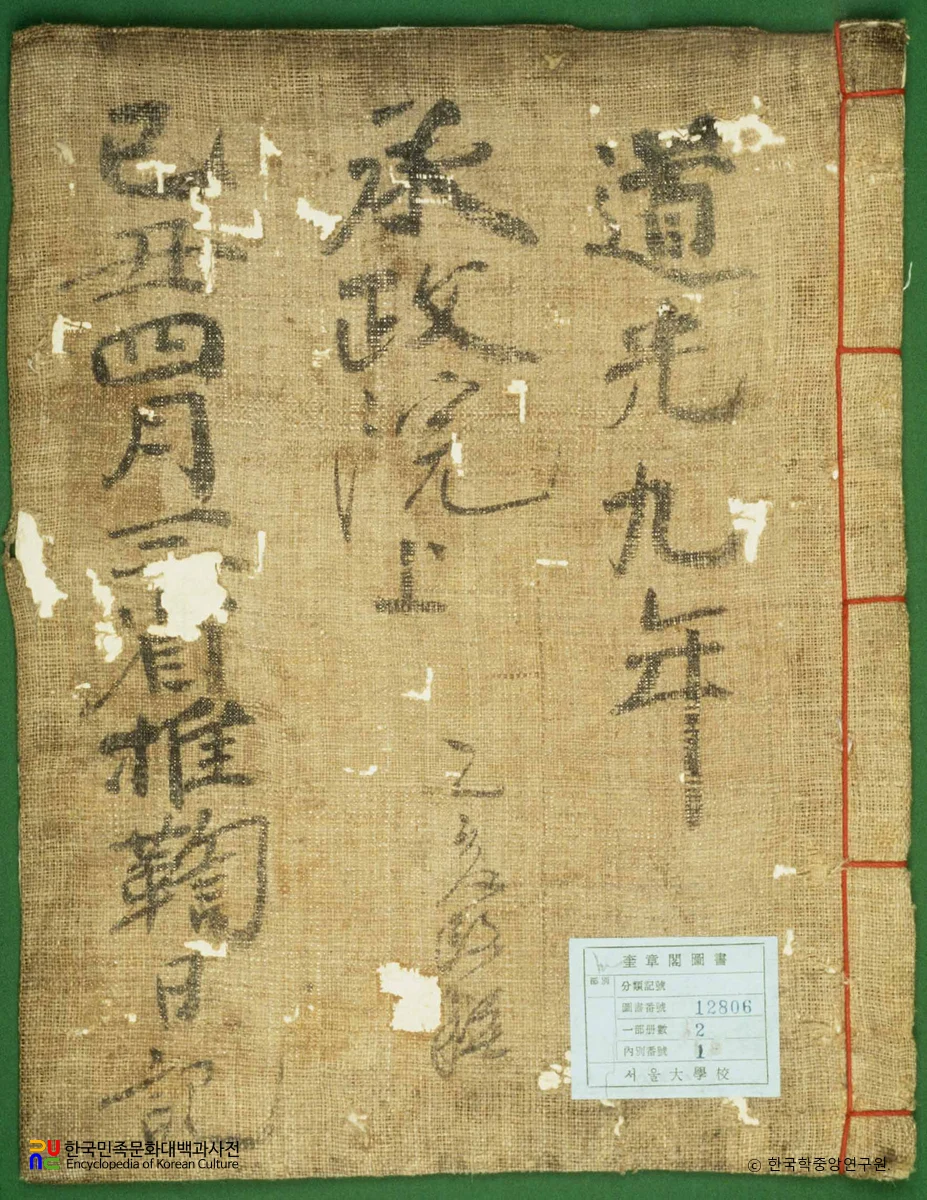 道光九年
承政院上
己丑四月三省推鞫日記
奎章閣圖書
部別
分類記號
圖書番號 12806
一部册數 2
內別番號 1
서울大學校
한국민족문화대백과사전
Encyclopedia of Korean Culture
© 한국학중앙연구원.